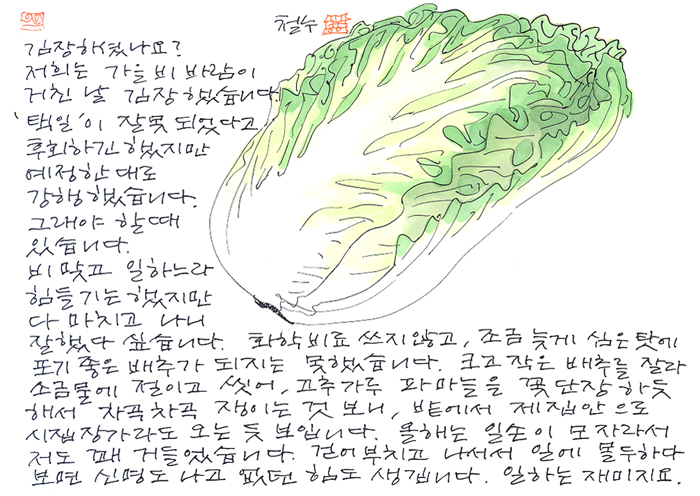 철수
김장하셨나요?
저희는 가을 비 바람이
거친 날 김장했습니다.
'택일'이 잘못 되었다고
후회하긴 했지만
예정한 대로
강행했습니다.
그래야 할 때
있습니다.
비 맞고 일하느라
힘들기는 했지만
다 마치고 나니
잘했다 싶습니다. 화학비료 쓰지않고, 조금 늦게 심은 탓에
포기 좋은 배추가 되지는 못했습니다. 크고 작은 배추를 잘라
소금물에 절이고 씻어, 고추가루 파마늘을 꽃단장 하듯
해서 차곡차곡 쟁이는 것 보니, 밭에서 제 집안으로
시집장가라도 오는 듯 보입니다. 올해는 일손이 모자라서
저도 꽤 거들었습니다. 걷어부치고 나서서 일에 몰두하다
보면 신명도 나고 없던 힘도 생깁니다. 일하는 재미지요.